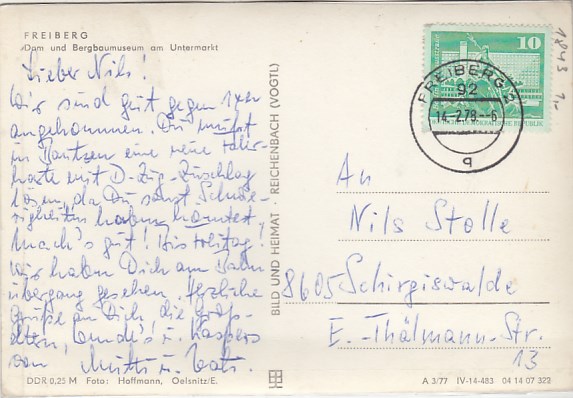 FREIBERG
Dom und Bergbaumuseum am Untermarkt
Lieber Nils!
Wir sind gut gegen
angekommen. Du mußt
in Bautzen eine neue Fahr-
karte mit D-Zug-Zuschlag
lösen, da Du sonst Schwie-
rigkeiten haben könntest.
Mach's gut! Bis Freitag!
Wir haben Dich am Bahn
übergang gesehen. Herzliche
Grüße an Dich, die Groß-
eltern, u. Kaspers
von Mutti u. Vati.
DDR 0,25 M Foto: Hoffmann, Oelsnitz/E.
BILD UND HEIMAT · REICHENBACH (VOGTL)
10
FREIBERG
92
14-2.78-6
q
1843
An
Nils Stolle
8605 Schirgiswalde
E.-Thälmann-Str.
13
A 3/77 IV-14-483 04 14 07 322